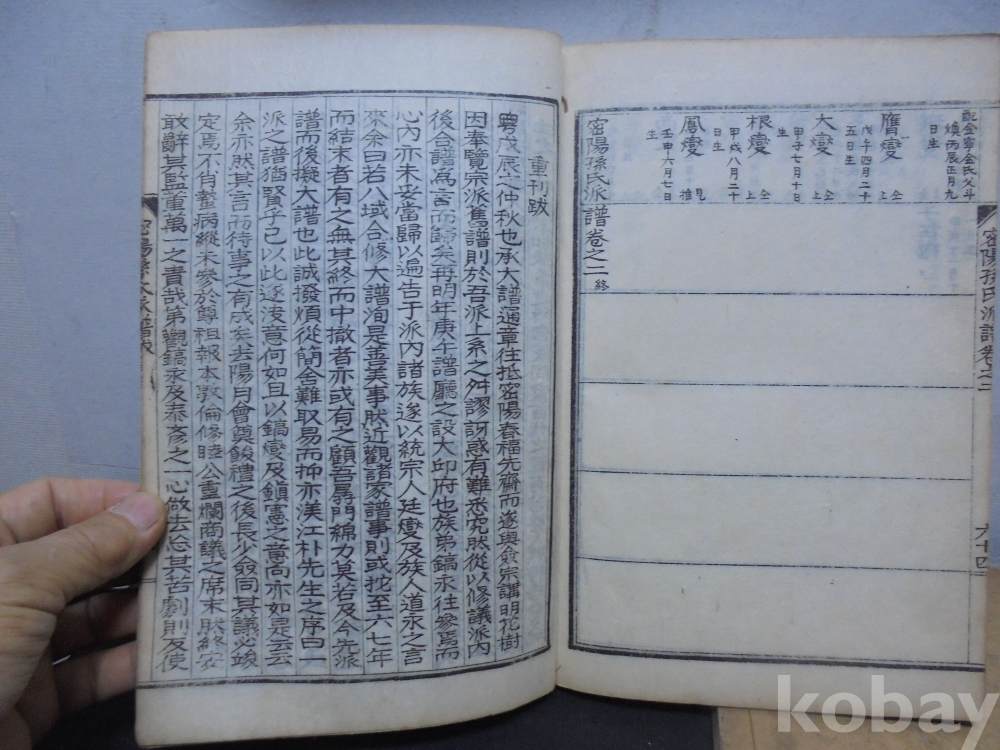 密陽孫氏派譜卷之二
六十四
配金寧金氏父斗
煥丙辰正月九
日生
膺燮 仝上
戊午四月二十
五日生
大燮 仝上
甲子七月十
日生
根燮 仝上
甲戌八月二十
生
鳳燮 兄推
壬申六月七日
生
密陽孫氏派譜卷之二 終
重刊跋
粤戊辰之仲秋也承大譜通章往抵密陽春福先齋而遂與僉宗講明花樹
因奉覽宗派舊譜則於吾派上系之舛謬訝惑有難悉究然從以修議派內
後合譜爲言而歸矣再明年庚午譜廳之設大邱府也族弟鎬永往參焉而
心內亦未妥當歸以遍告于派內諸族遂以統宗人廷燮及族人道永之言
來余曰若八域合修大譜洵是善美事然近觀諸家譜事則或拕至六七年
而結末者有之無其終而中撤者亦或有之顧吾孱門綿力莫若及今先派
譜而後擬大譜也此誠撥煩從簡舍難取易而抑亦渼江朴先生之序曰一
派之譜猶賢乎已以此遂浚意何如且以鎬燮及鎭憲之意向亦如是云云
余亦然其言而待事之有成矣去陽月會奠餕禮之後長少僉同其議必竣
定焉不肖蟄病縱未參於尊祖報本敦倫修睦公重爛商議之席末然終安
敢辭其監董萬一之責哉第觀鎬永及泰彥之一心做去忘其苦劇則及使
密陽孫氏派譜跋
kobay